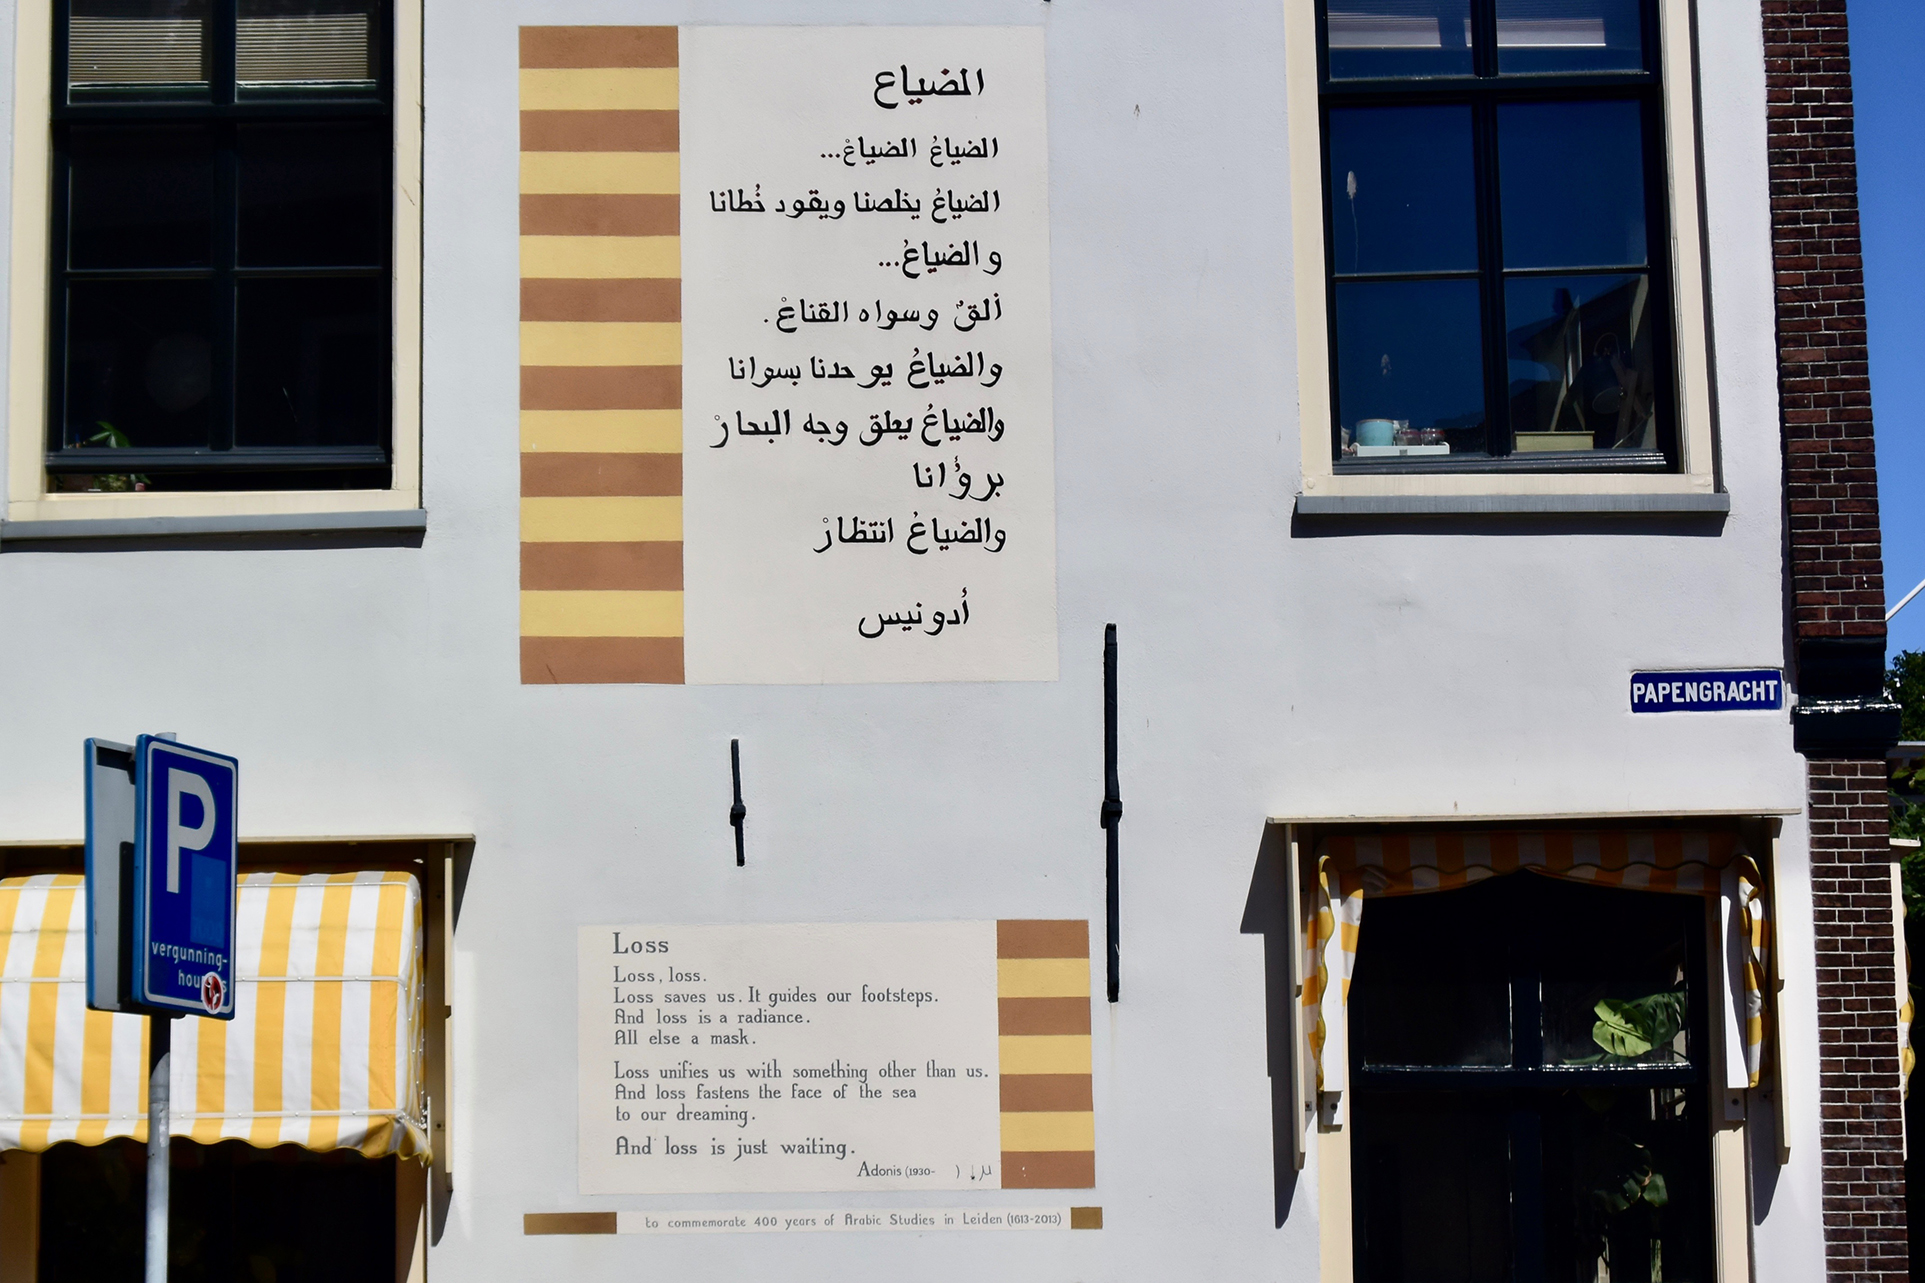 الضياع
الضياعُ الضياعْ...
الضياعُ يخلصنا ويقود خُطانا
والضياعُ...
ألقٌ وسواه القناعْ.
والضياعُ يوحدنا بسوانا
والضياعُ يعلق وجه البحارْ
برؤانا
والضياعُ انتظارْ
أدونيس
PAPENGRACHT
P
vergunning-
Loss
Loss, loss.
Loss saves us. It guides our footsteps.
And loss is a radiance.
All else a mask.
Loss unifies us with something other than us.
And loss fastens the face of the sea
to our dreaming.
And loss is just waiting.
Adonis (1930- )
to commemorate 400 years of Arabic Studies in Leiden (1613-2013)